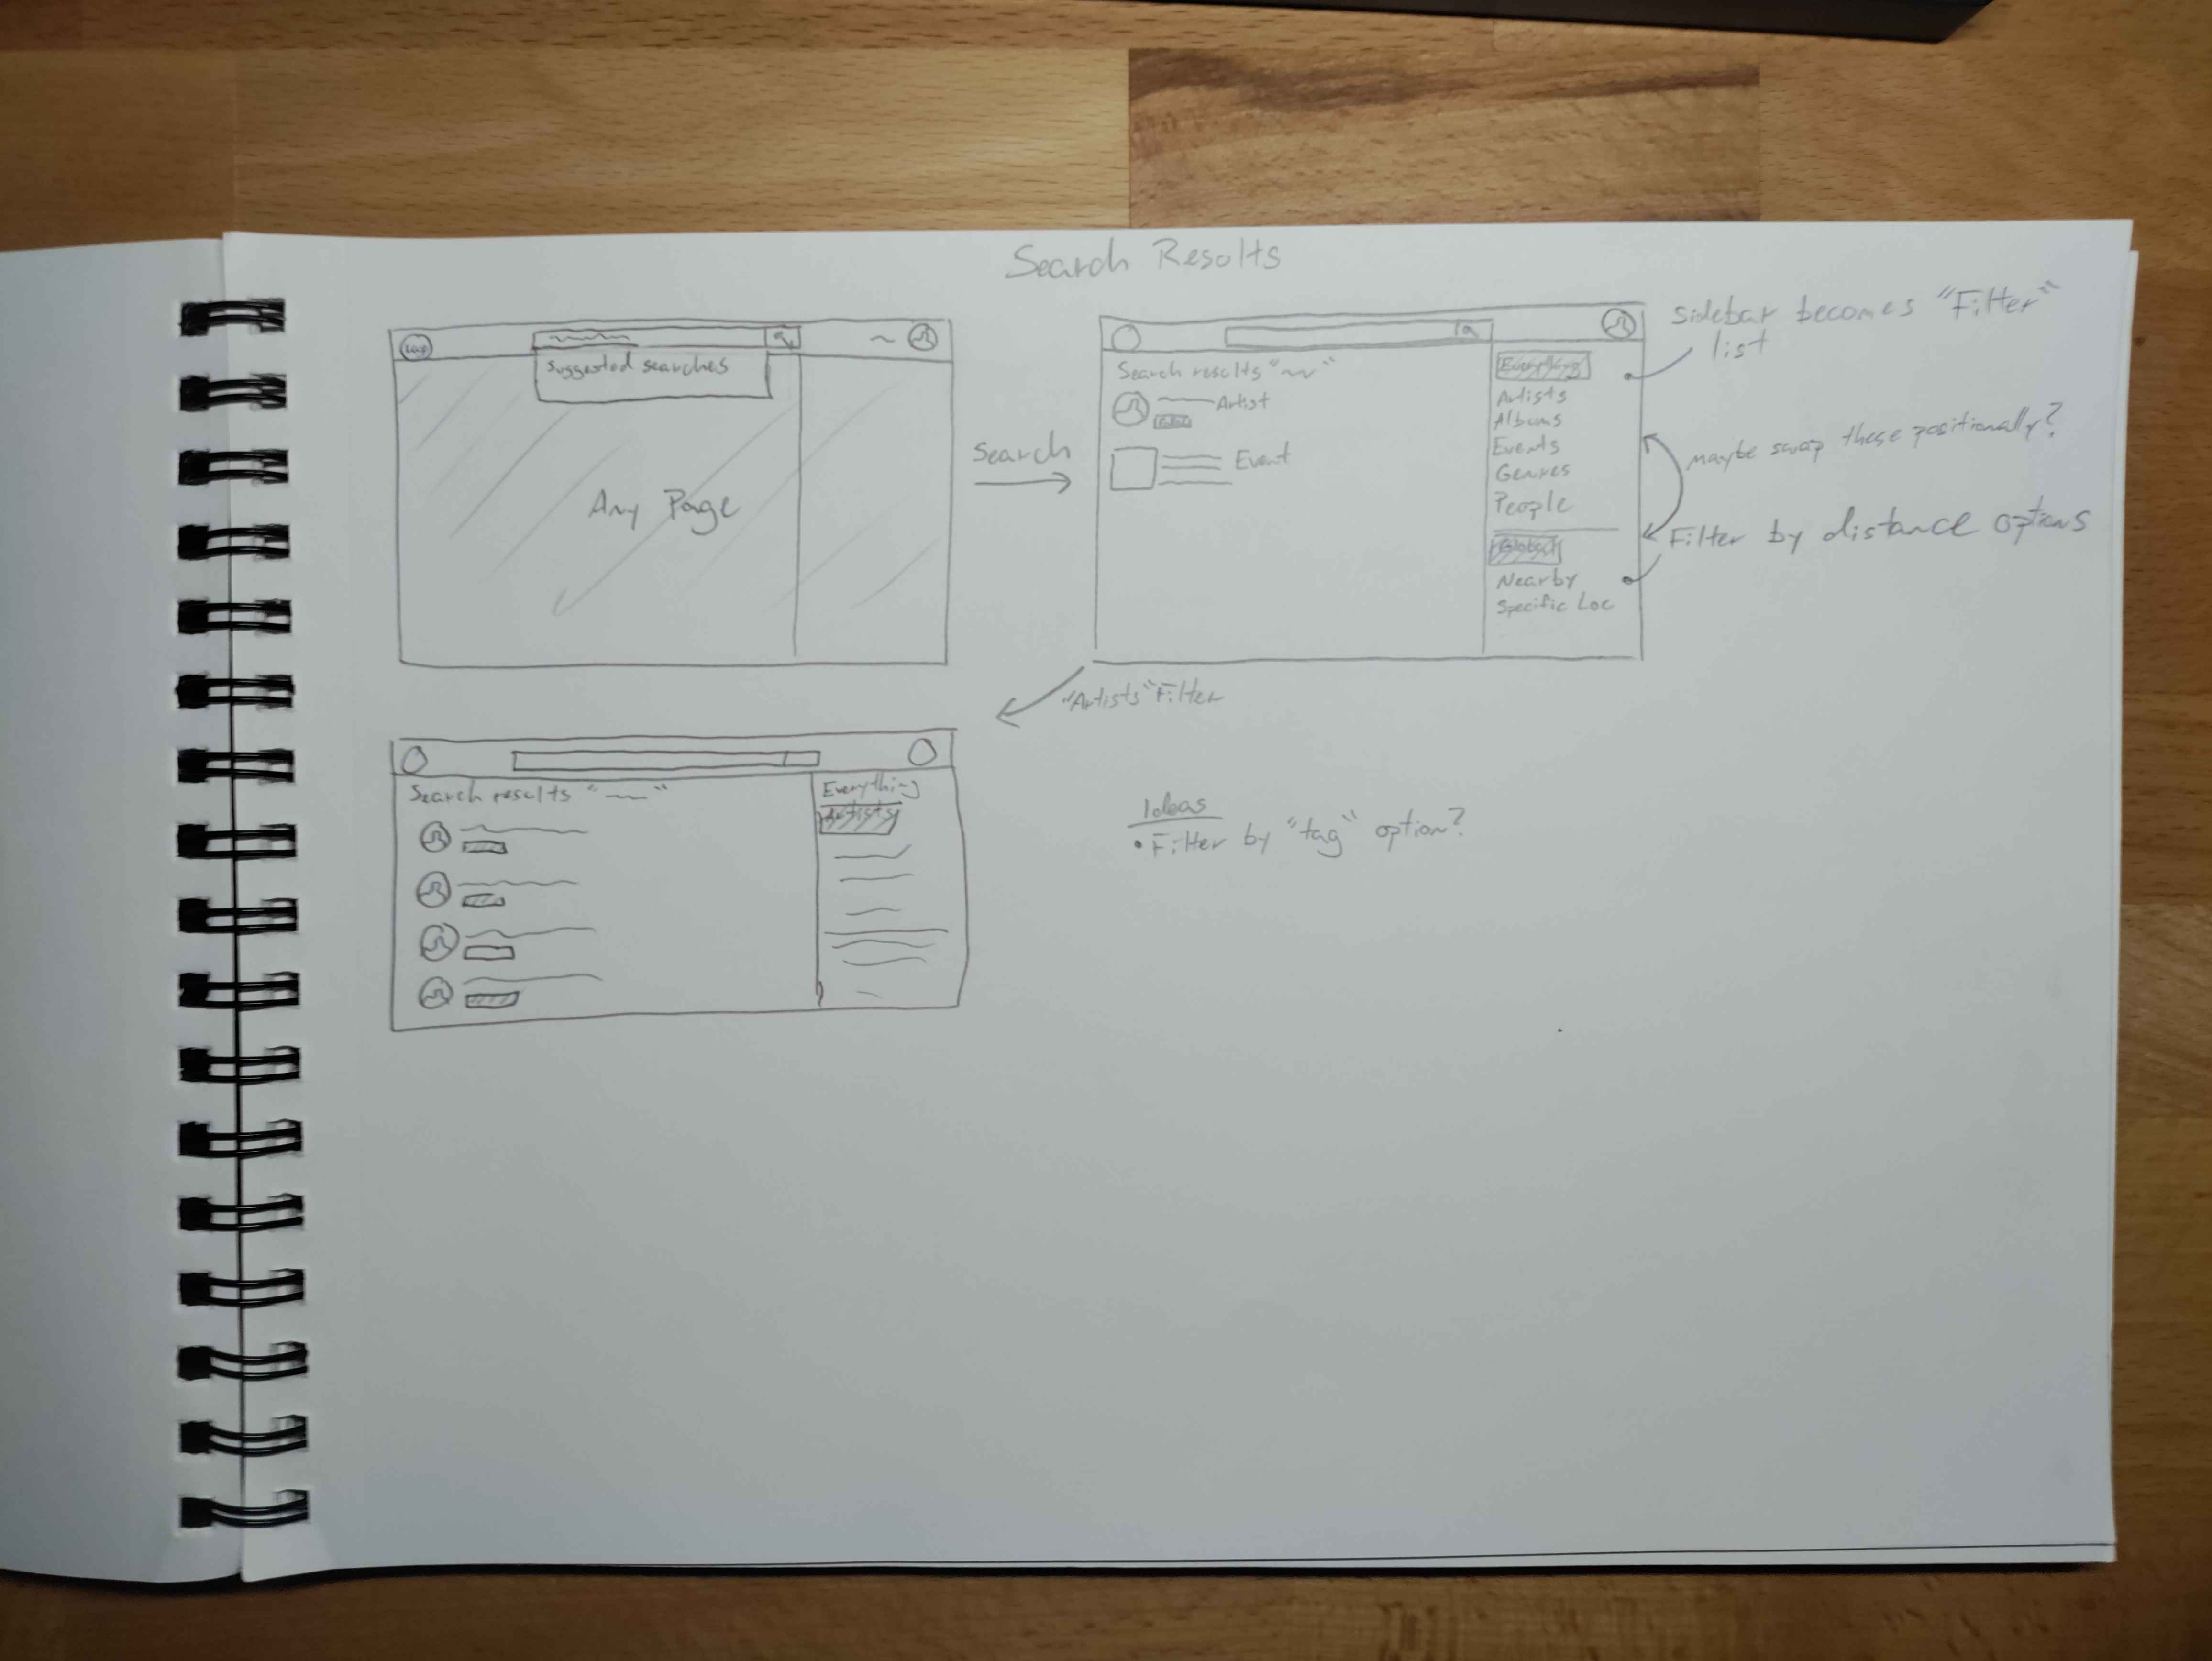 Search Results
Logo
Suggested searches
Any Page
Search
Search results "~"
Artist
Event
Everything
Artists
Albums
Events
Genres
People
Global
Nearby
Specific Loc
Sidebar becomes "Filter"
list
maybe swap these positionally?
Filter by distance options
"Artists" Filter
Search results "~"
Everything
Artists
Ideas
• Filter by "tag" option?